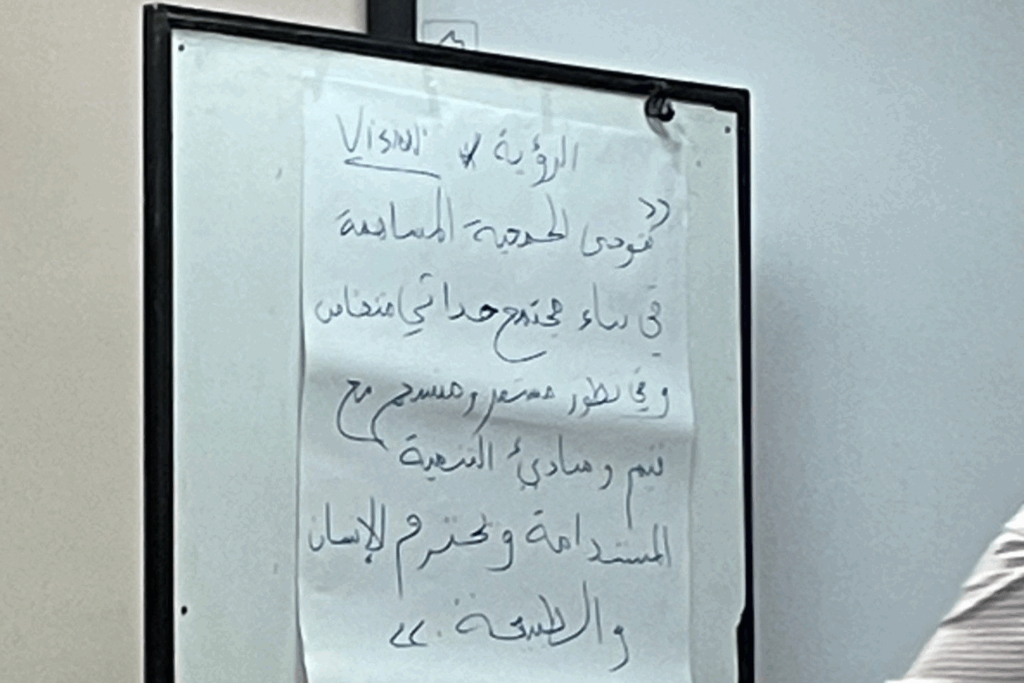 الرؤية * Vision
"تنوي الجمعية المساهمة
في بناء مجتمع حداثي متضامن
وفي تطور مستمر ومنسجم مع
قيم ومبادئ التنمية
المستدامة ويحترم الإنسان
والطبيعة."